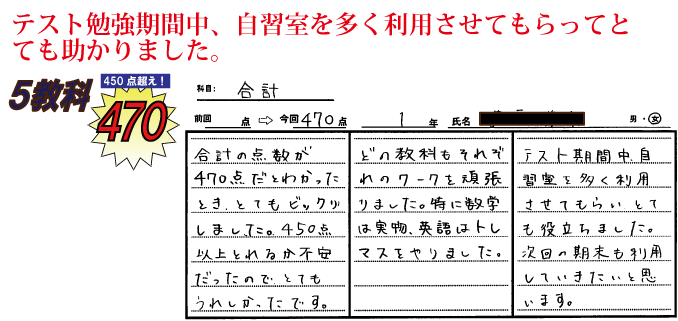 テスト勉強期間中、自習室を多く利用させてもらってと
ても助かりました。
5教科
450点超え！
470
科目：合計
前回 点 ⇨ 今回 470 点 1 年 氏名 男・女
合計の点数が
470点だとわかった
とき、とてもビックリ
しました。450点
以上とれるか不安
だったので、とても
うれしかったです。
どの教科もそれぞ
れのワークを頑張
りました。特に数学
は実物、英語はトレ
マスをやりました。
テスト期間中、自
習室を多く利用
させてもらい、とて
も役立ちました。
次回の期末も利用
していきたいと思
います。